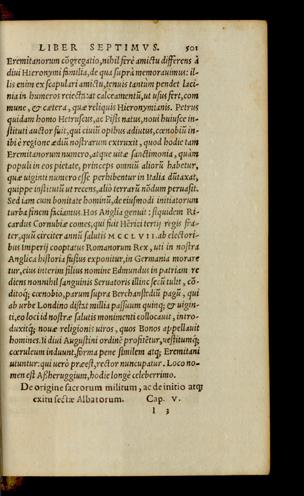 LIBER SEPTIMVS. 501
Eremitanorum cõgregatio, nihil ferè amictu differens à
diui Hieronymi familia, de qua supra memorauimus: il-
lis enim ex scapulari amictu, tenuis tantum pendet laci-
nia in humeros reiecta: at calceamentũ, ut usus fert, com
mune, & cætera, quæ reliquis Hieronymianis. Petrus
quidam homo Hetruscus, ac Pisis natus, noui huiusce in-
stituti auctor fuit, qui ciuiũ opibus adiutus, cœnobiũ in-
ibi è regione ædiũ nostrarum extruxit, quod hodie tam
Eremitanorum numero, atque uitæ sanctimonia, quàm
populi in eos pietate, princeps omniũ aliorũ habetur,
quæ uiginti numero esse perhibentur in Italia dũtaxat,
quippe institutũ ut recens, aliò terrarũ nõdum peruasit.
Sed iam cum bonitate hominũ, de eiusmodi initiatorum
turba finem faciamus. Hos Anglia genuit: siquidem Ri-
cardus Cornubiæ comes, qui fuit Hērici tertij regis fra-
ter, quũ circiter annũ salutis M CC LVII ab electori-
bus imperij cooptatus Romanorum Rex, uti in nostra
Anglica historia fusius exponitur, in Germania morare
tur, eius interim filius nomine Edmundus in patriam re
diens nonnihil sanguinis Seruatoris illinc secũ tulit, cō-
ditoq; cœnobio, parum supra Berchanstedũ pagũ, qui
ab urbe Londino distat millia passuum quinq; & uigin-
ti, eo loci id nostræ salutis monimenti collocauit, intro-
duxitq; nouæ religionis uiros, quos Bonos appellauit
homines. Ii diui Augustini ordinē profitẽtur, uestitumq;
cœruleum induunt, forma pene similem atq; Eremitani
utuntur: qui uerò præest, rector nuncupatur. Loco no-
men est Asheruggium, hodie longè celeberrimo.
De origine sacrorum militum, ac de initio atq
exitu sectæ Albatorum. Cap. V.
I 3